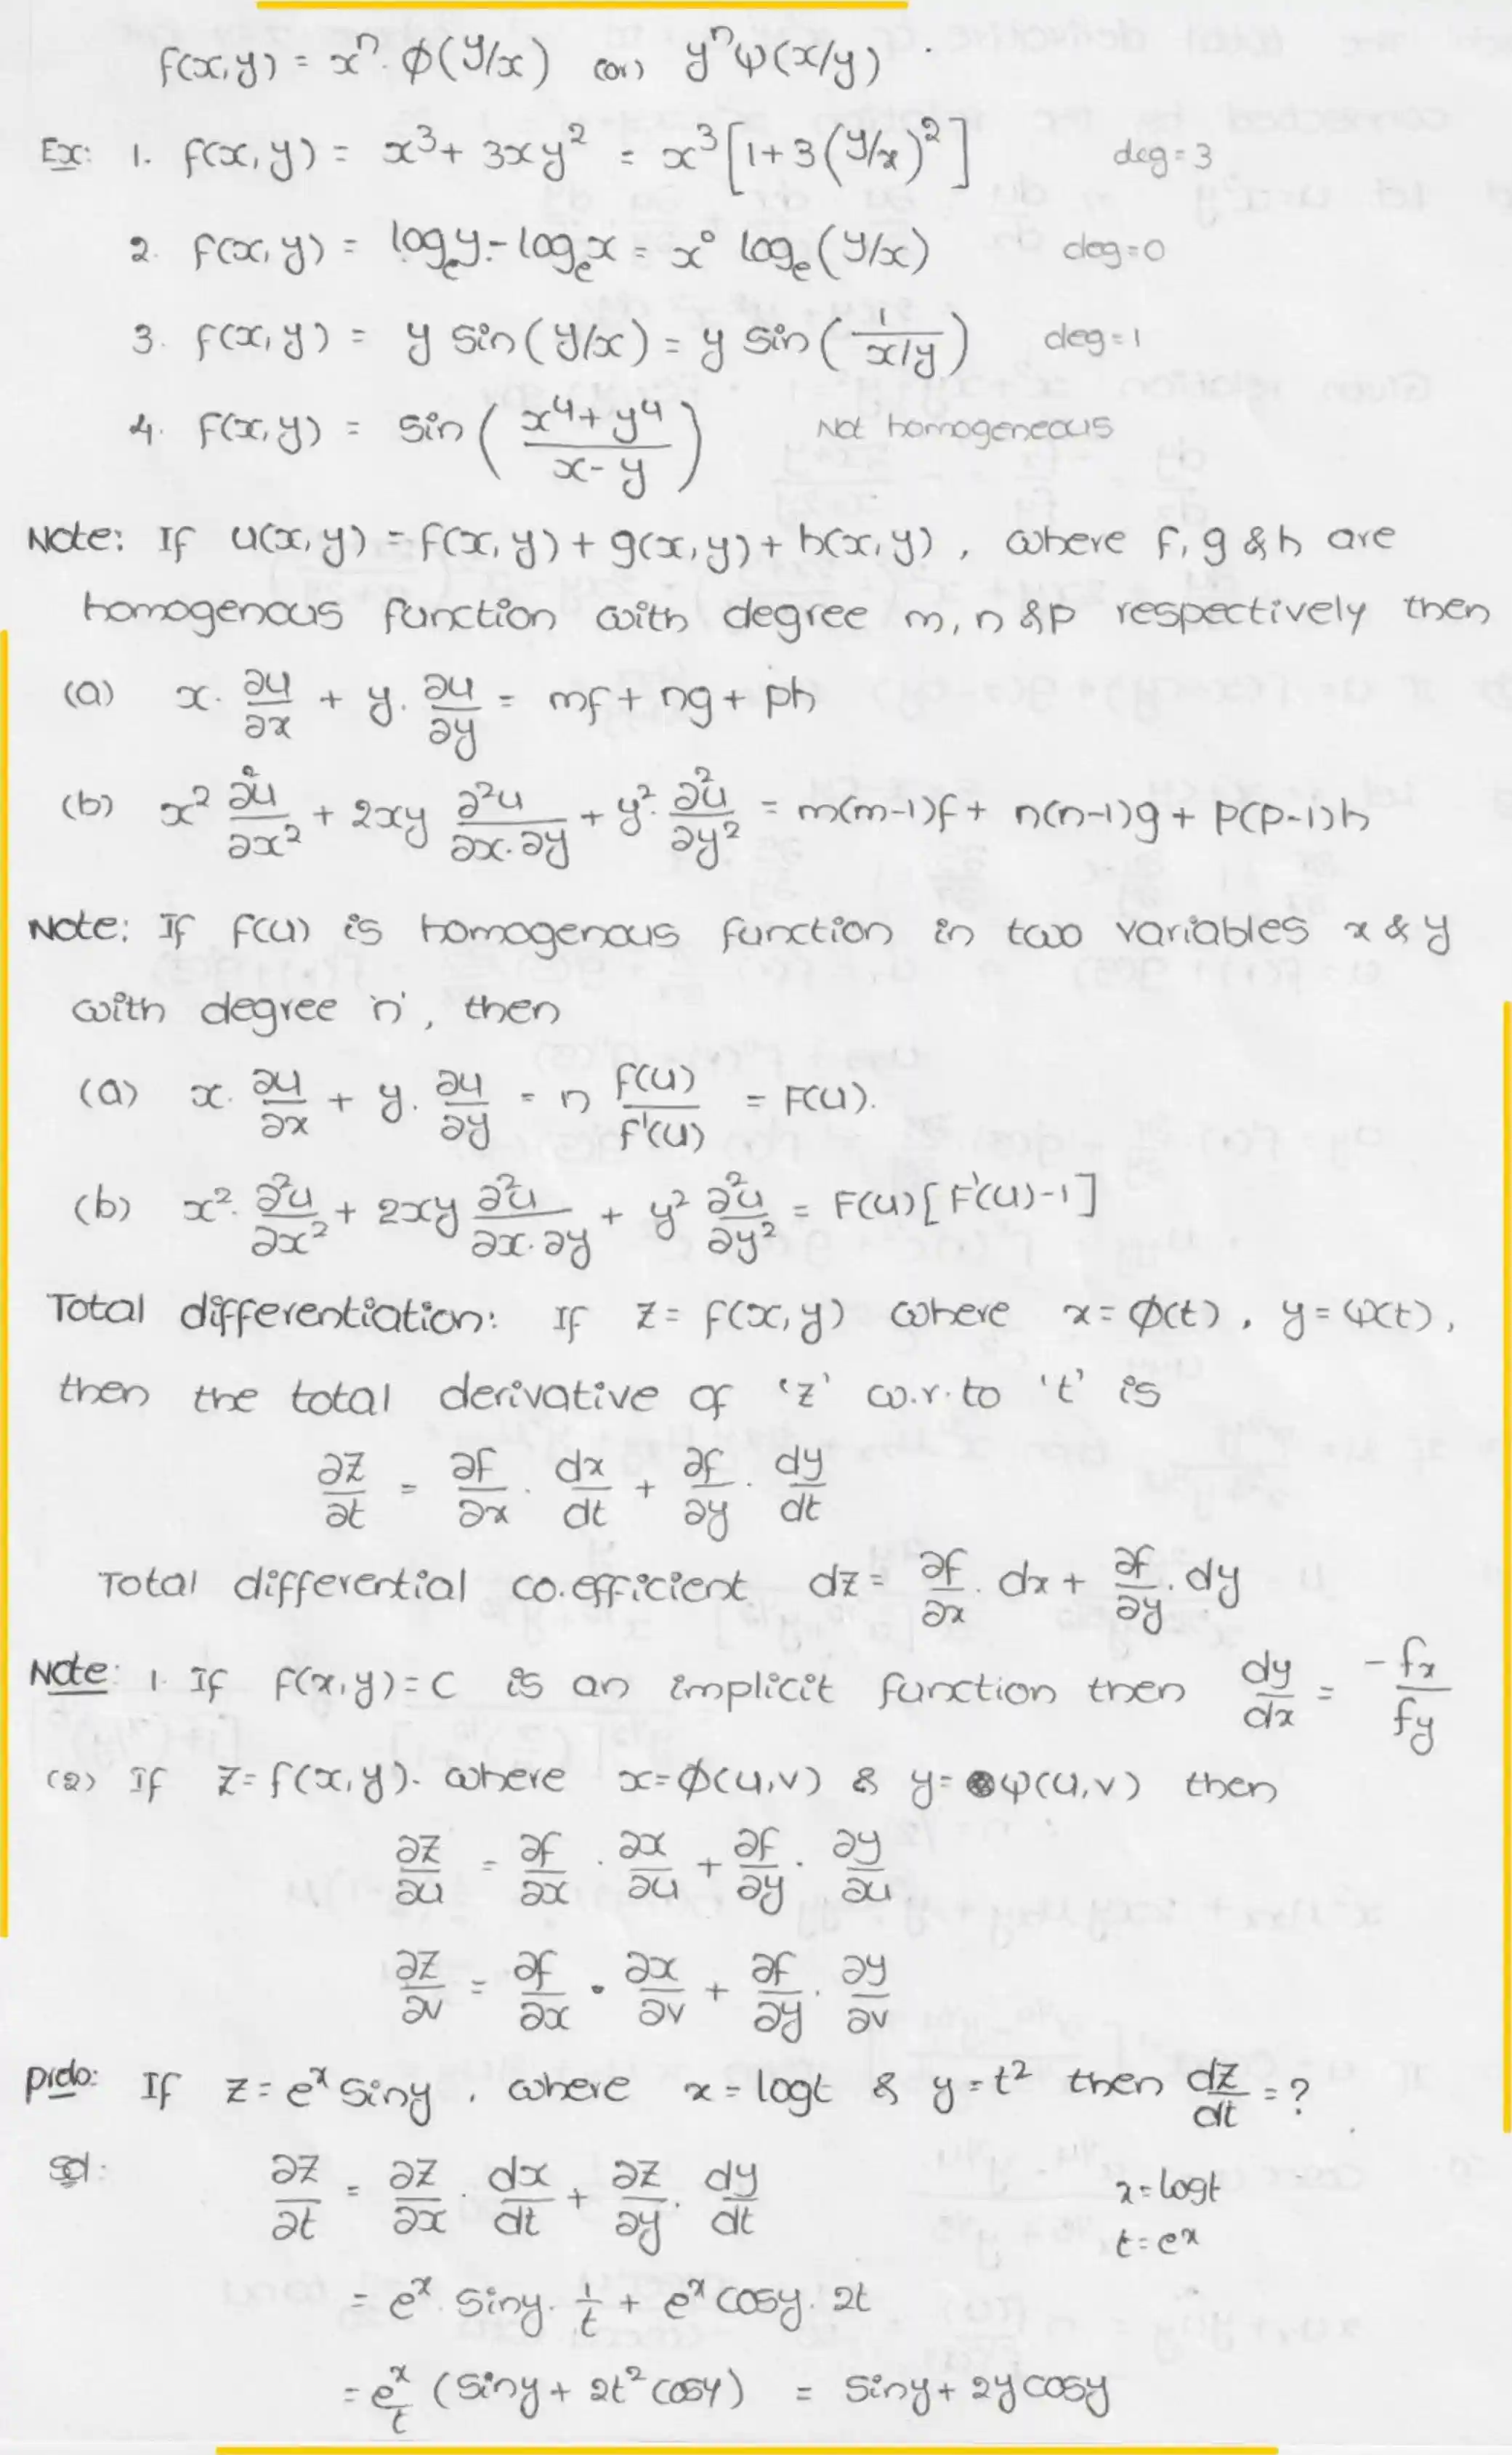 f(x,y) = xⁿ. ϕ(y/x) (or) yⁿψ(x/y)
Ex: 1. f(x,y) = x³+ 3xy² = x³[1+3(y/x)²] deg=3
2. f(x,y) = logₑy - logₑx = x⁰ logₑ(y/x) deg=0
3. f(x,y) = y sin(y/x) = y sin(1/(x/y)) deg=1
4. f(x,y) = sin((x⁴+y⁴)/(x-y)) Not homogeneous
Note: If u(x,y) = f(x,y)+g(x,y)+h(x,y), where f,g &h are
homogenous function with degree m,n &p respectively then
(a) x. ∂u/∂x + y. ∂u/∂y = mf+ng+ph
(b) x² ∂²u/∂x² + 2xy ∂²u/∂x.∂y + y². ∂²u/∂y² = m(m-1)f+ n(n-1)g+ p(p-1)h
Note: If f(u) is homogenous function in two variables x & y
with degree 'n', then
(a) x. ∂u/∂x + y. ∂u/∂y = n f(u)/f'(u) = F(u).
(b) x². ∂²u/∂x² + 2xy ∂²u/∂x.∂y + y² ∂²u/∂y² = F(u)[F'(u)-1]
Total differentiation: If z= f(x,y) where x=ϕ(t), y=ψ(t),
then the total derivative of 'z' w.r.to 't' is
∂z/∂t = ∂f/∂x . dx/dt + ∂f/∂y . dy/dt
Total differential co.efficient dz= ∂f/∂x . dx+ ∂f/∂y . dy
Note: 1. If f(x,y)=C is an implicit function then dy/dx = -fx/fy
(2) If z=f(x,y). where x=ϕ(u,v) & y=ψ(u,v) then
∂z/∂u = ∂f/∂x . ∂x/∂u + ∂f/∂y . ∂y/∂u
∂z/∂v = ∂f/∂x . ∂x/∂v + ∂f/∂y . ∂y/∂v
prob: If z=eˣ siny, where x=logt & y=t² then dz/dt =?
Sol: ∂z/∂t = ∂z/∂x . dx/dt + ∂z/∂y . dy/dt x=logt
t=eˣ
= eˣ. siny. 1/t + eˣ cosy. 2t
= eˣ/t (siny+ 2t² cosy) = siny+ 2y cosy